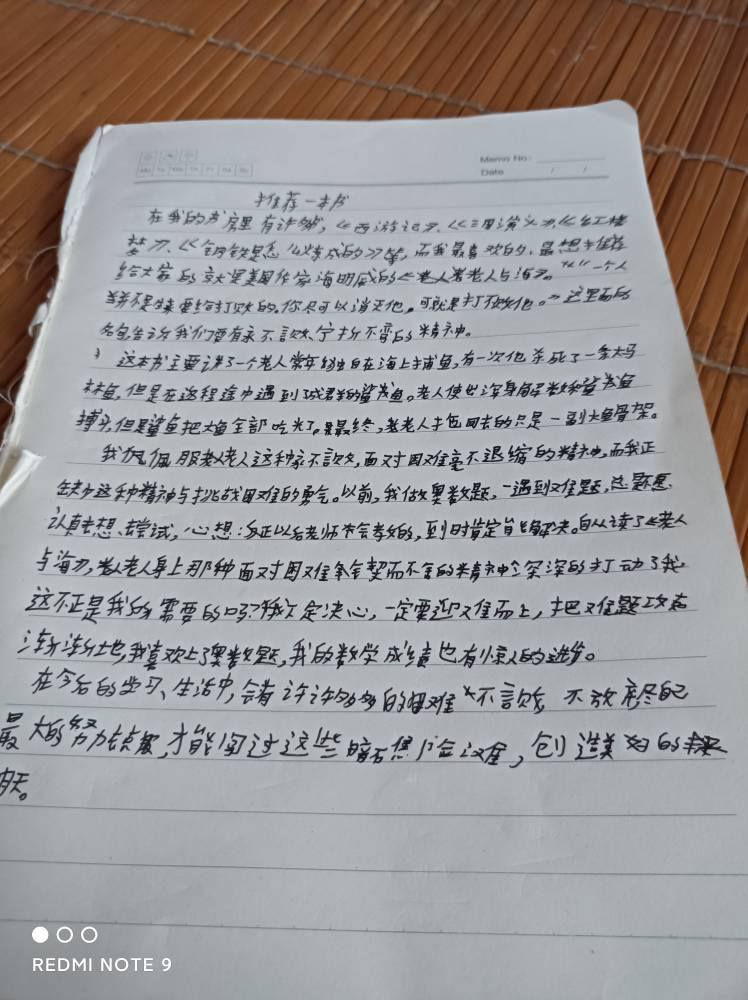 Memo No:
Mo Tu We Th Fr Sa Su
Date / /
推荐一本书
在我的书房里有许多书,《西游记》、《三国演义》、《红楼
梦》、《钢铁是怎么炼成的》等,而我最喜欢的、最想推荐
给大家的就是美国作家海明威的《老人与海》。"一个人
并不是生来要给打败的,你尽可以消灭他,可就是打不败他。"这里面的
名句告诉我们要有永不言败、宁折不弯的精神。
这本书主要讲了一个老人常年独自在海上捕鱼,有一次他杀死了一条大马
林鱼,但是在返程途中遇到了成群的鲨鱼。老人使出浑身解数和鲨鱼
搏斗,但是鲨鱼把大鱼全部吃光了。最终,老人打包回去的只是一副大鱼骨架。
我佩服老人这种永不言败,面对困难毫不退缩的精神,而我正
缺少这种精神与挑战困难的勇气。以前,我做奥数题,一遇到难题,总不愿
认真去想、尝试,心想:反正以后老师会教的,到时肯定能解决。自从读了《老人
与海》,老人身上那种面对困难锲而不舍的精神深深的打动了我,
这不正是我所需要的吗?我下定决心,一定要迎难而上,把难题攻克
渐渐地,我喜欢上了奥数题,我的数学成绩也有惊人的进步。
在今后的学习、生活中,会有许许多多的困难 不言败 不放弃 尽自己
最大的努力去克服,才能闯过这些 难,创造美好的
明天。
REDMI NOTE 9